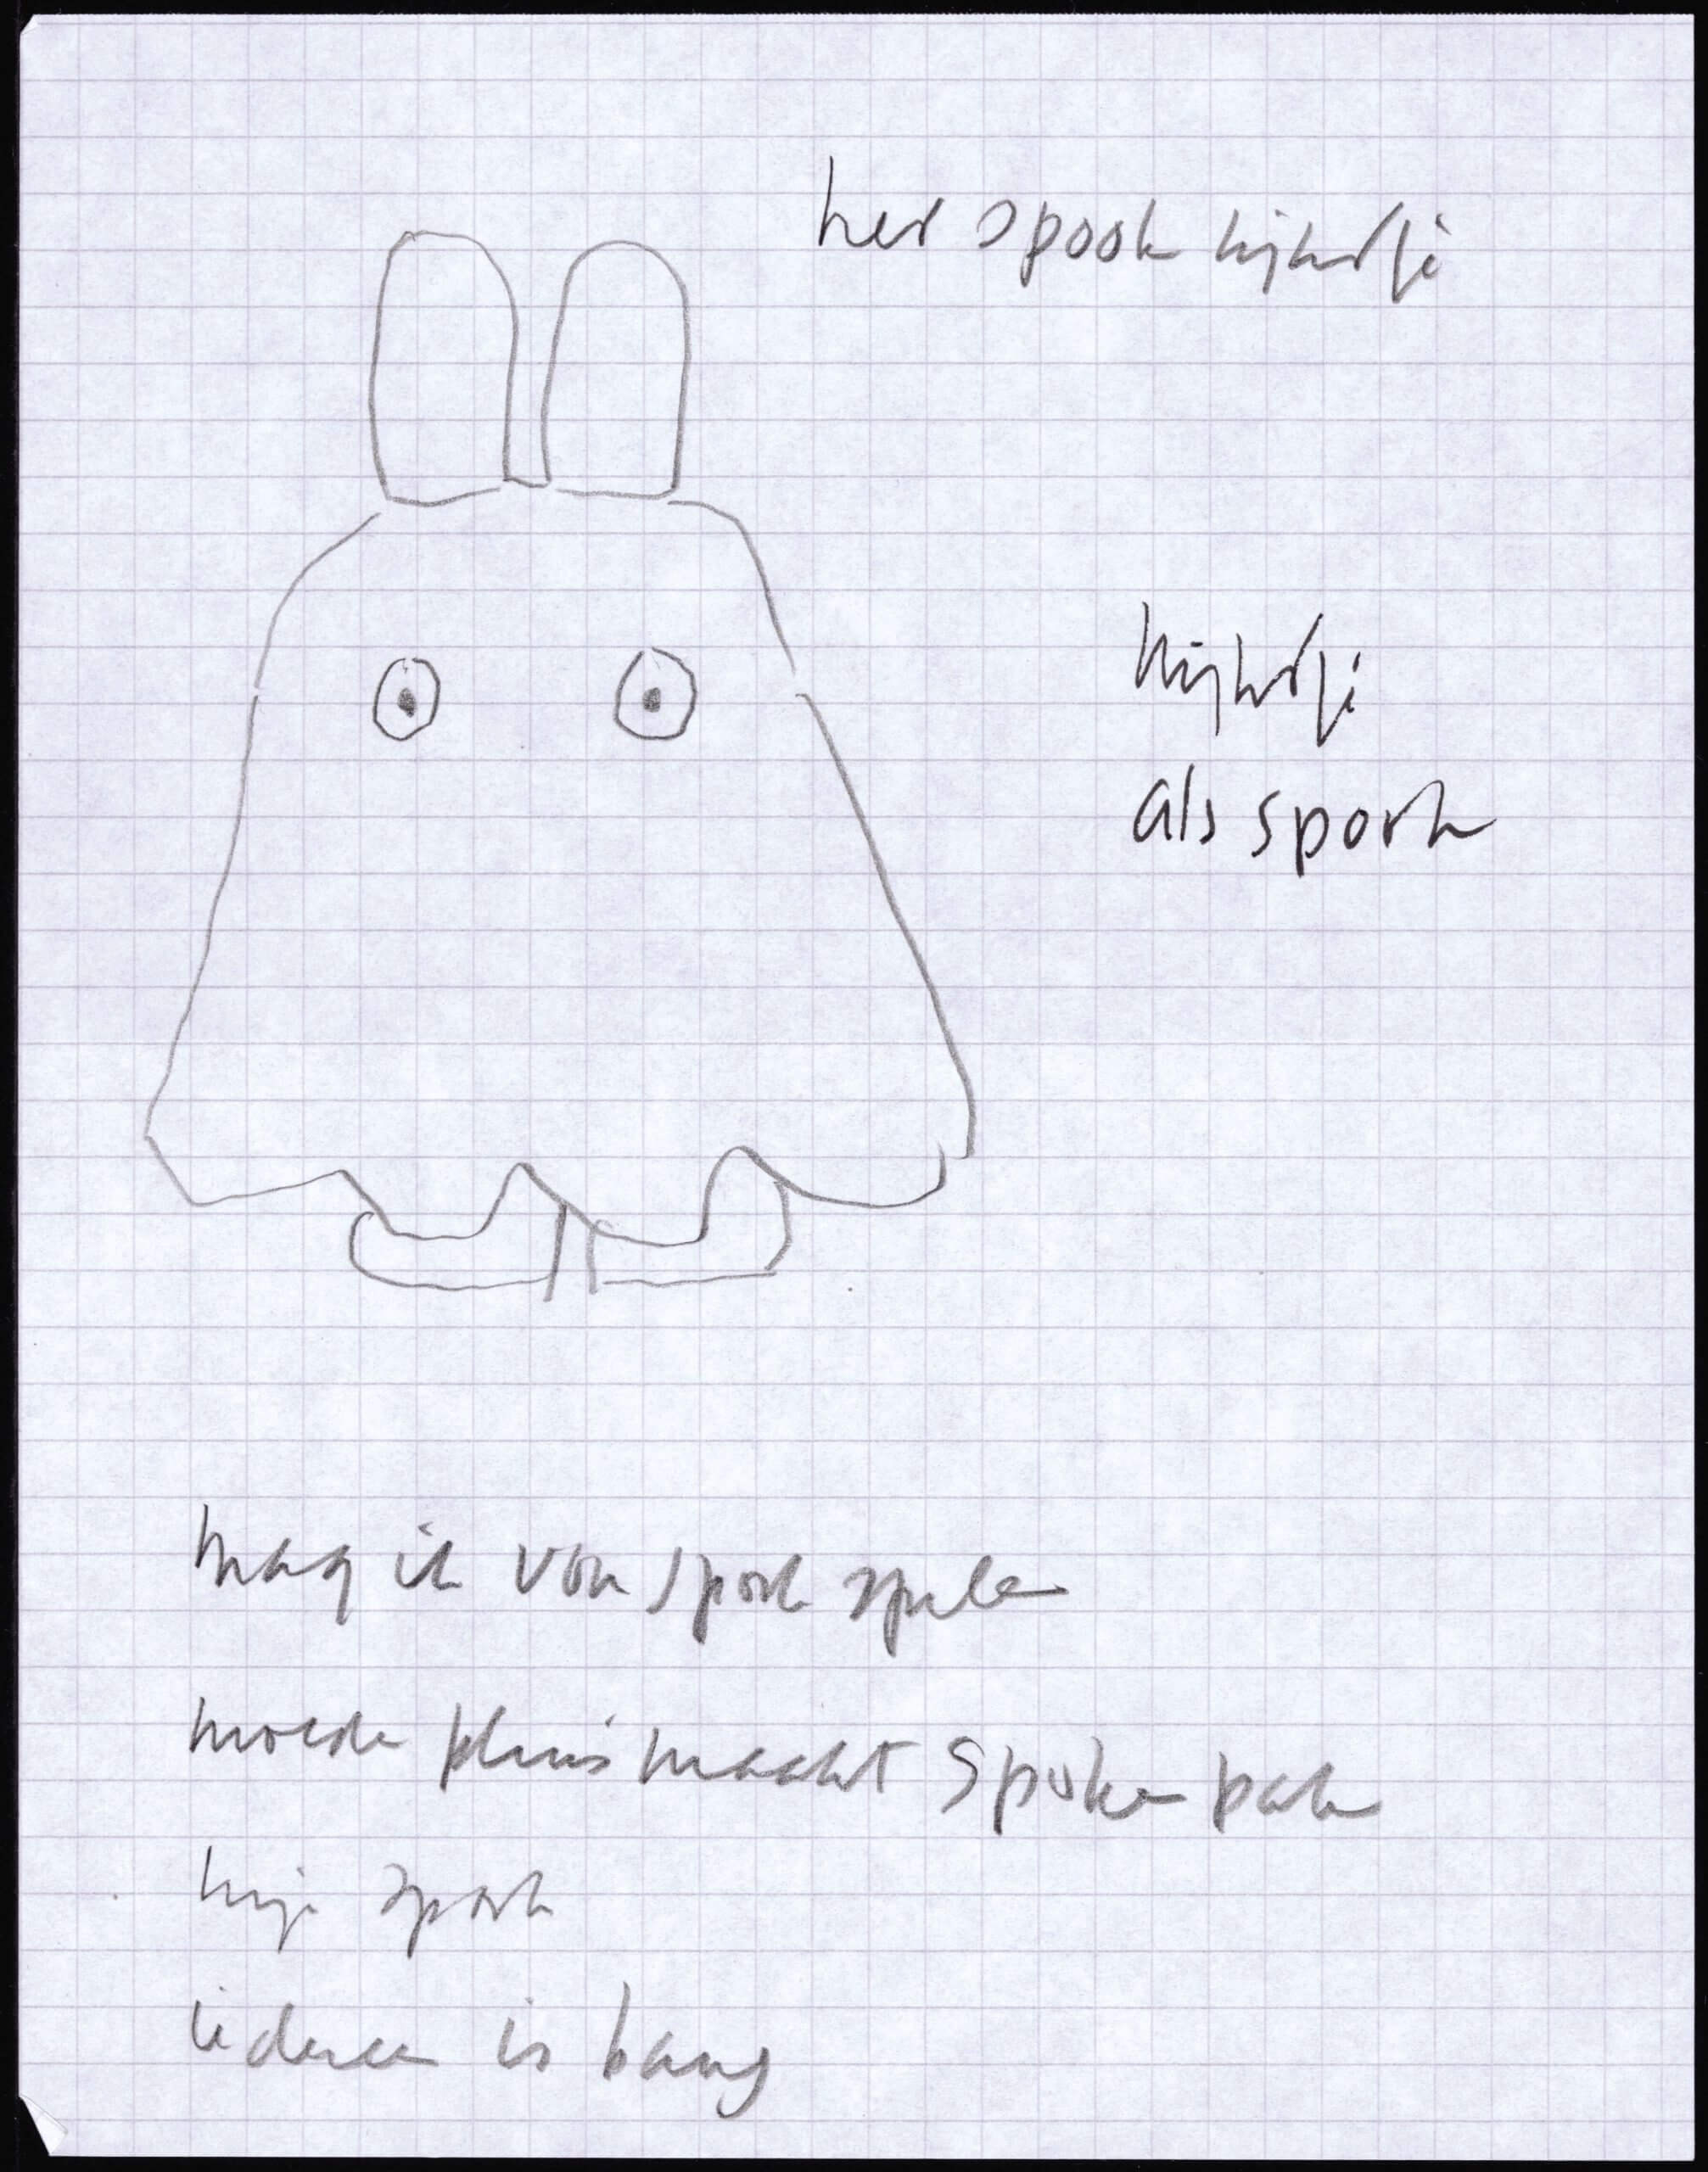 het spook nijntje
nijntje
als spook
mag ik voor spook spelen
moeder pluis maakt spokenpak
nijn spook
iedereen is bang